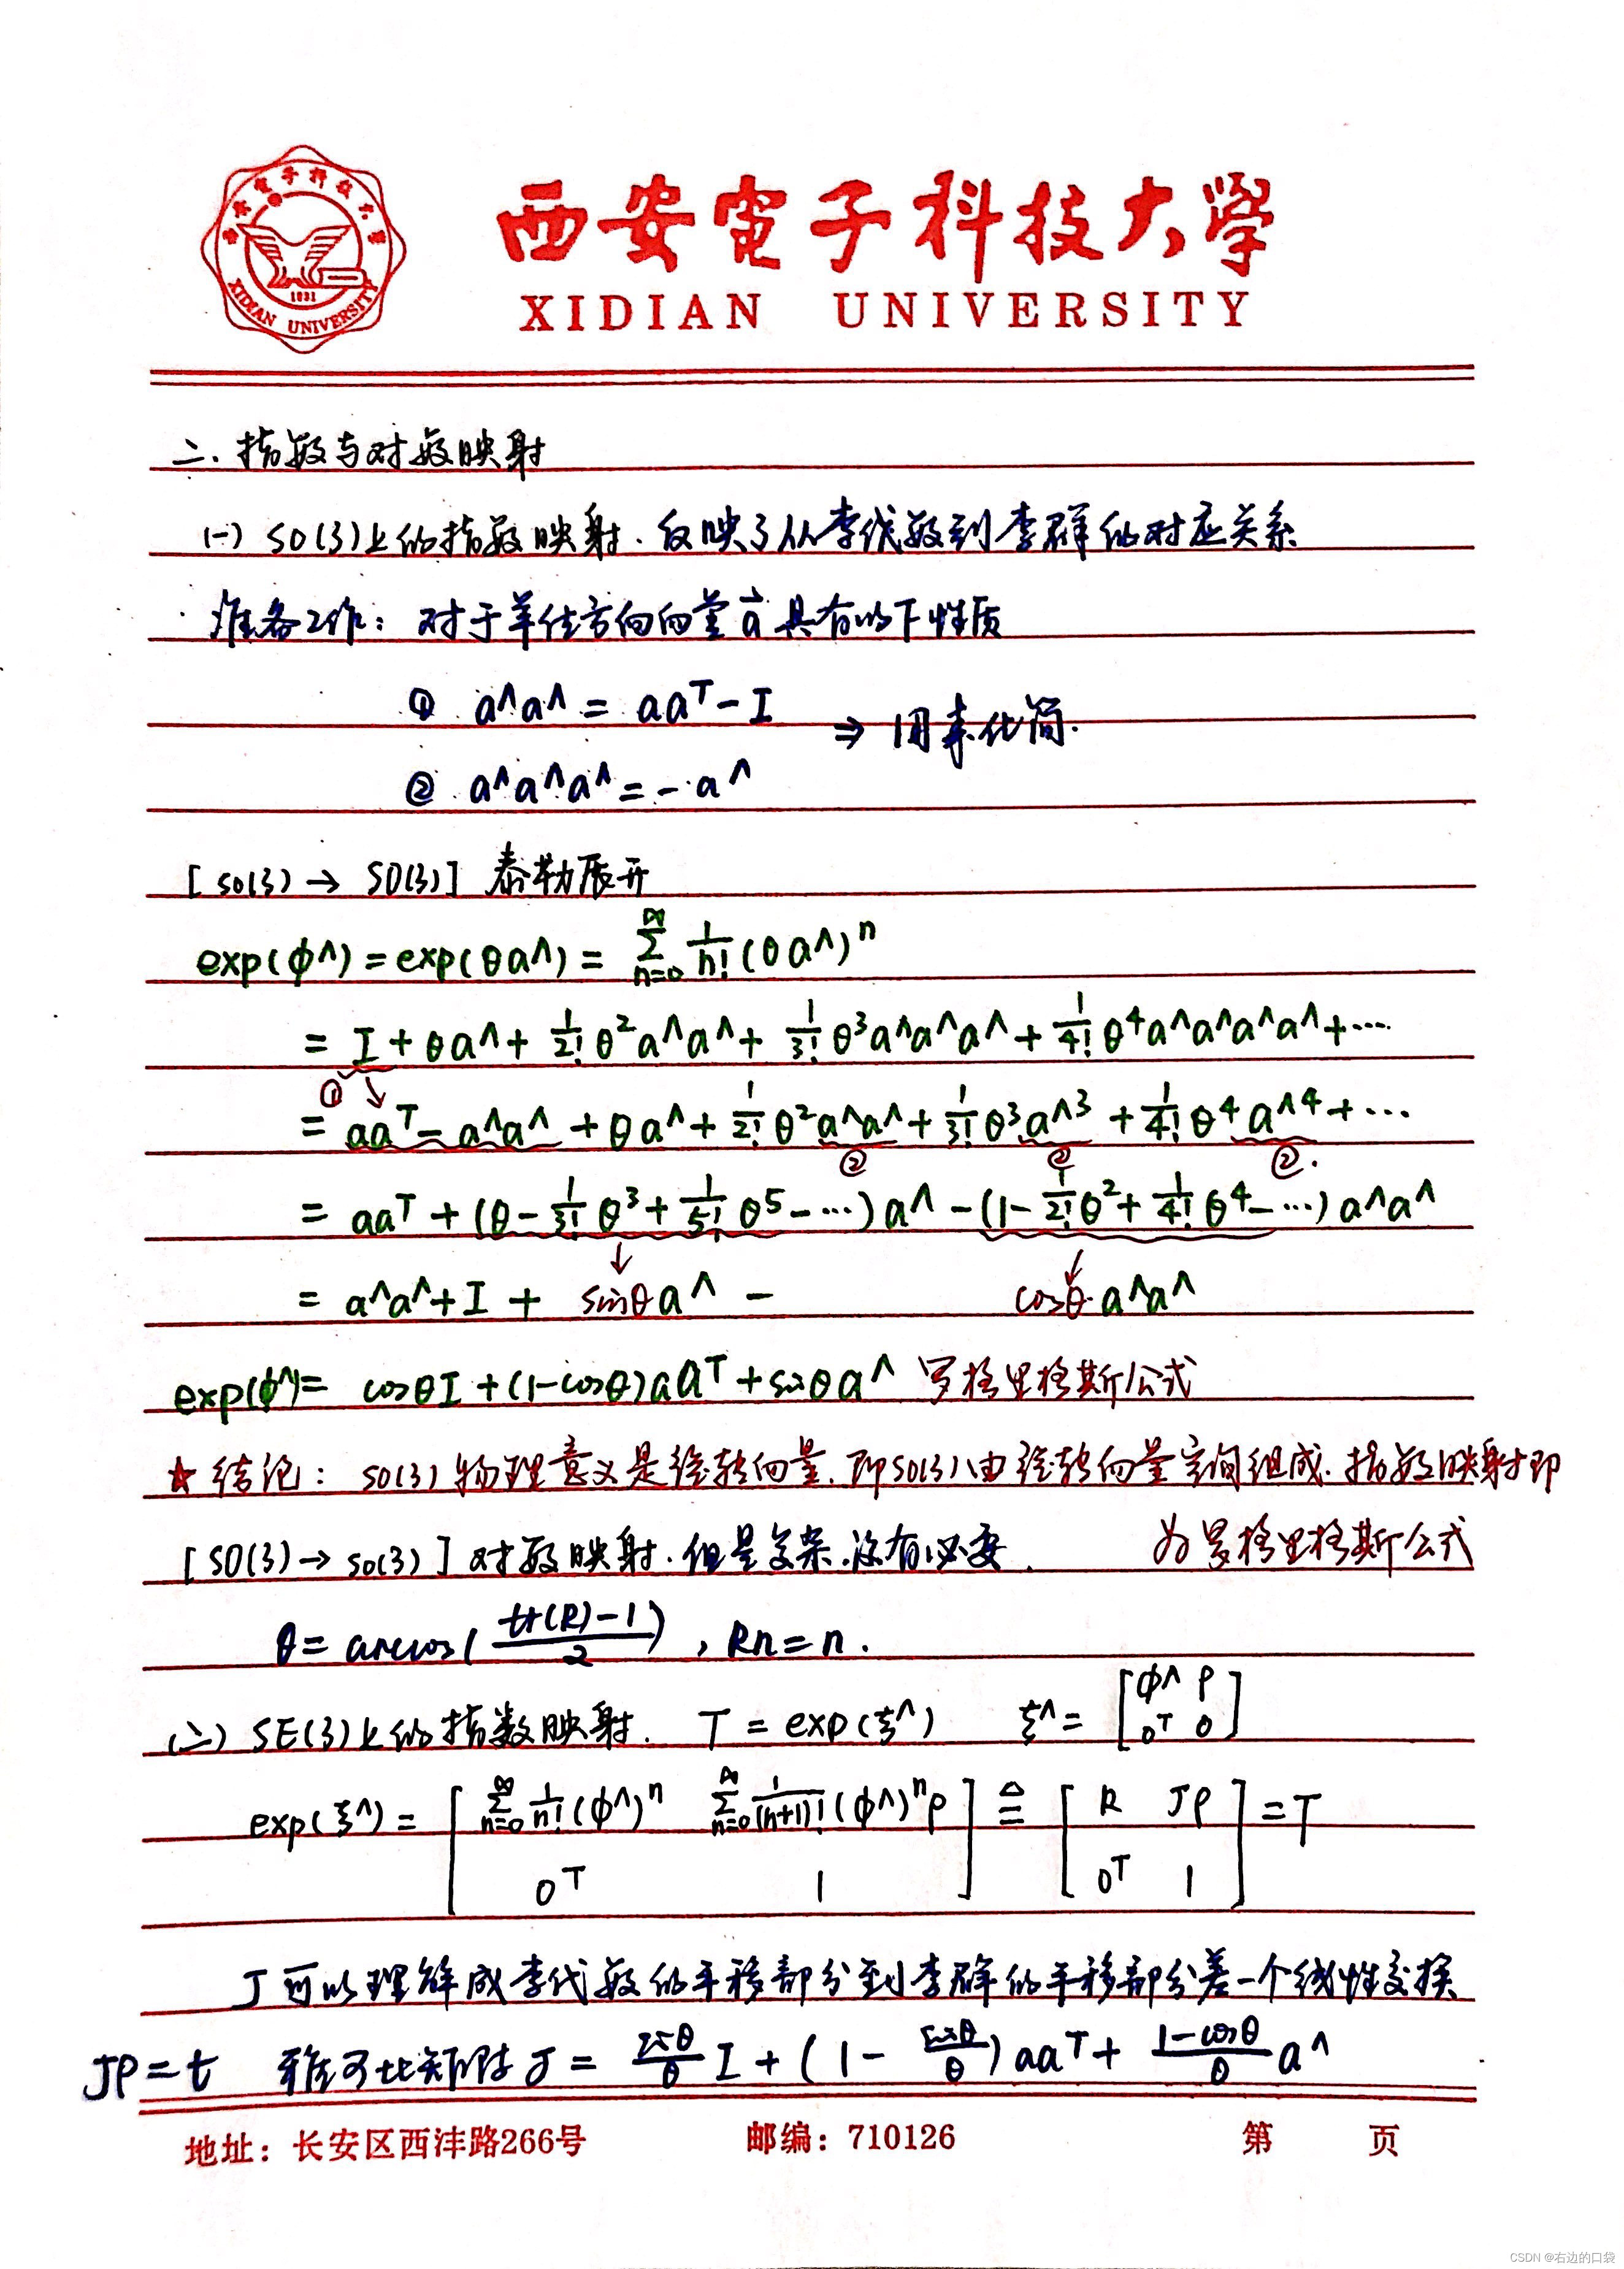 西安電子科技大學
XIDIAN UNIVERSITY
1931
XIDIAN UNIVERSITY
二. 指数与对数映射
(一) SO(3)上的指数映射. 反映了从李代数到李群的对应关系
准备工作: 对于单位方向向量 a⃗ 具有以下性质
① a^a^ = aaᵀ - I
⇒ 用来化简.
② a^a^a^ = -a^
[so(3) → SO(3)] 泰勒展开
exp(φ^) = exp(θa^) = ∑_{n=0}^{∞} 1/n! (θa^)ⁿ
= I + θa^ + 1/2! θ²a^a^ + 1/3! θ³a^a^a^ + 1/4! θ⁴a^a^a^a^ + ⋯
① ↓
= aaᵀ - a^a^ + θa^ + 1/2! θ²a^a^ + 1/3! θ³a^³ + 1/4! θ⁴a^⁴ + ⋯
② ② ②.
= aaᵀ + (θ - 1/3! θ³ + 1/5! θ⁵ - ⋯) a^ - (1 - 1/2! θ² + 1/4! θ⁴ - ⋯) a^a^
↓ ↓
= a^a^ + I + sinθ a^ - cosθ·a^a^
exp(φ^) = cosθI + (1-cosθ)aaᵀ + sinθa^ 罗格里格斯公式
★ 结论: so(3)物理意义是旋转向量, 即so(3)由旋转向量空间组成. 指数映射即
为罗格里格斯公式
[SO(3) → so(3)] 对数映射. 但是复杂. 没有必要.
θ = arccos( (tr(R)-1)/2 ) , Rn = n.
(二) SE(3)上的指数映射. T = exp(ξ^) ξ^ = [φ^ ρ; 0ᵀ 0]
exp(ξ^) = [∑_{n=0}^{∞} 1/n! (φ^)ⁿ ∑_{n=0}^{∞} 1/(n+1)! (φ^)ⁿρ; 0ᵀ 1] ≜ [R Jρ; 0ᵀ 1] = T
J 可以理解成李代数的平移部分到李群的平移部分差一个线性变换
Jρ = t 雅可比矩阵 J = sinθ/θ I + (1 - sinθ/θ) aaᵀ + (1-cosθ)/θ a^
地址: 长安区西沣路266号 邮编: 710126 第 页
CSDN @右边的口袋